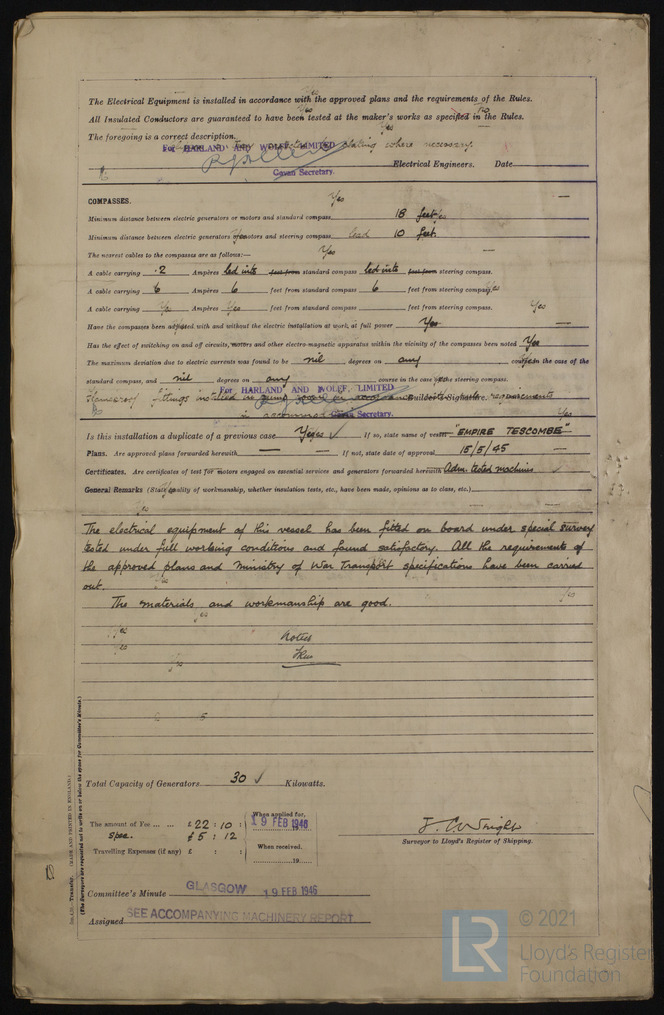 The Electrical Equipment is installed in accordance with the approved plans and the requirements of the Rules.
All Insulated Conductors are guaranteed to have been tested at the maker's works as specified in the Rules.
The foregoing is a correct description.
For HARLAND AND WOLFF, LIMITED plating where necessary.
Electrical Engineers. Date
Govan Secretary.
COMPASSES.
Minimum distance between electric generators or motors and standard compass 18 feet
Minimum distance between electric generators or motors and steering compass 10 feet
The nearest cables to the compasses are as follows:—
A cable carrying .2 Ampères led into feet from standard compass led into feet from steering compass.
A cable carrying 6 Ampères 6 feet from standard compass 6 feet from steering compass.
A cable carrying Ampères feet from standard compass feet from steering compass.
Have the compasses been adjusted with and without the electric installation at work at full power Yes
Has the effect of switching on and off circuits, motors and other electro-magnetic apparatus within the vicinity of the compasses been noted Yes
The maximum deviation due to electric currents was found to be nil degrees on any course in the case of the
standard compass, and nil degrees on any course in the case of the steering compass.
For HARLAND AND WOLFF, LIMITED
Flameproof fittings installed in Builder's Signature. requirements
Govan Secretary.
Is this installation a duplicate of a previous case Yes ✓ If so, state name of vessel "EMPIRE TESCOMBE"
Plans. Are approved plans forwarded herewith — If not, state date of approval 15/5/45
Certificates. Are certificates of test for motors engaged on essential services and generators forwarded herewith Adm. tested machines
General Remarks (State quality of workmanship, whether insulation tests, etc., have been made, opinions as to class, etc.)
The electrical equipment of this vessel has been fitted on board under special survey
tested under full working conditions and found satisfactory. All the requirements of
the approved plans and Ministry of War Transport specifications have been carried
out.
The materials and workmanship are good.
Noted
Total Capacity of Generators 30 ✓ Kilowatts.
The amount of Fee ... ... £ 22 : 10 :
When applied for, 19 FEB 1946
spec. £ 5 : 12
Travelling Expenses (if any) £ : :
When received. 19
J. C. Wright
Surveyor to Lloyd's Register of Shipping.
Committee's Minute GLASGOW 19 FEB 1946
Assigned SEE ACCOMPANYING MACHINERY REPORT.
(MADE AND PRINTED IN ENGLAND.)
(The Surveyors are requested not to write on or below the space for Committee's Minute.)
LR
© 2021
Lloyd's Register
Foundation